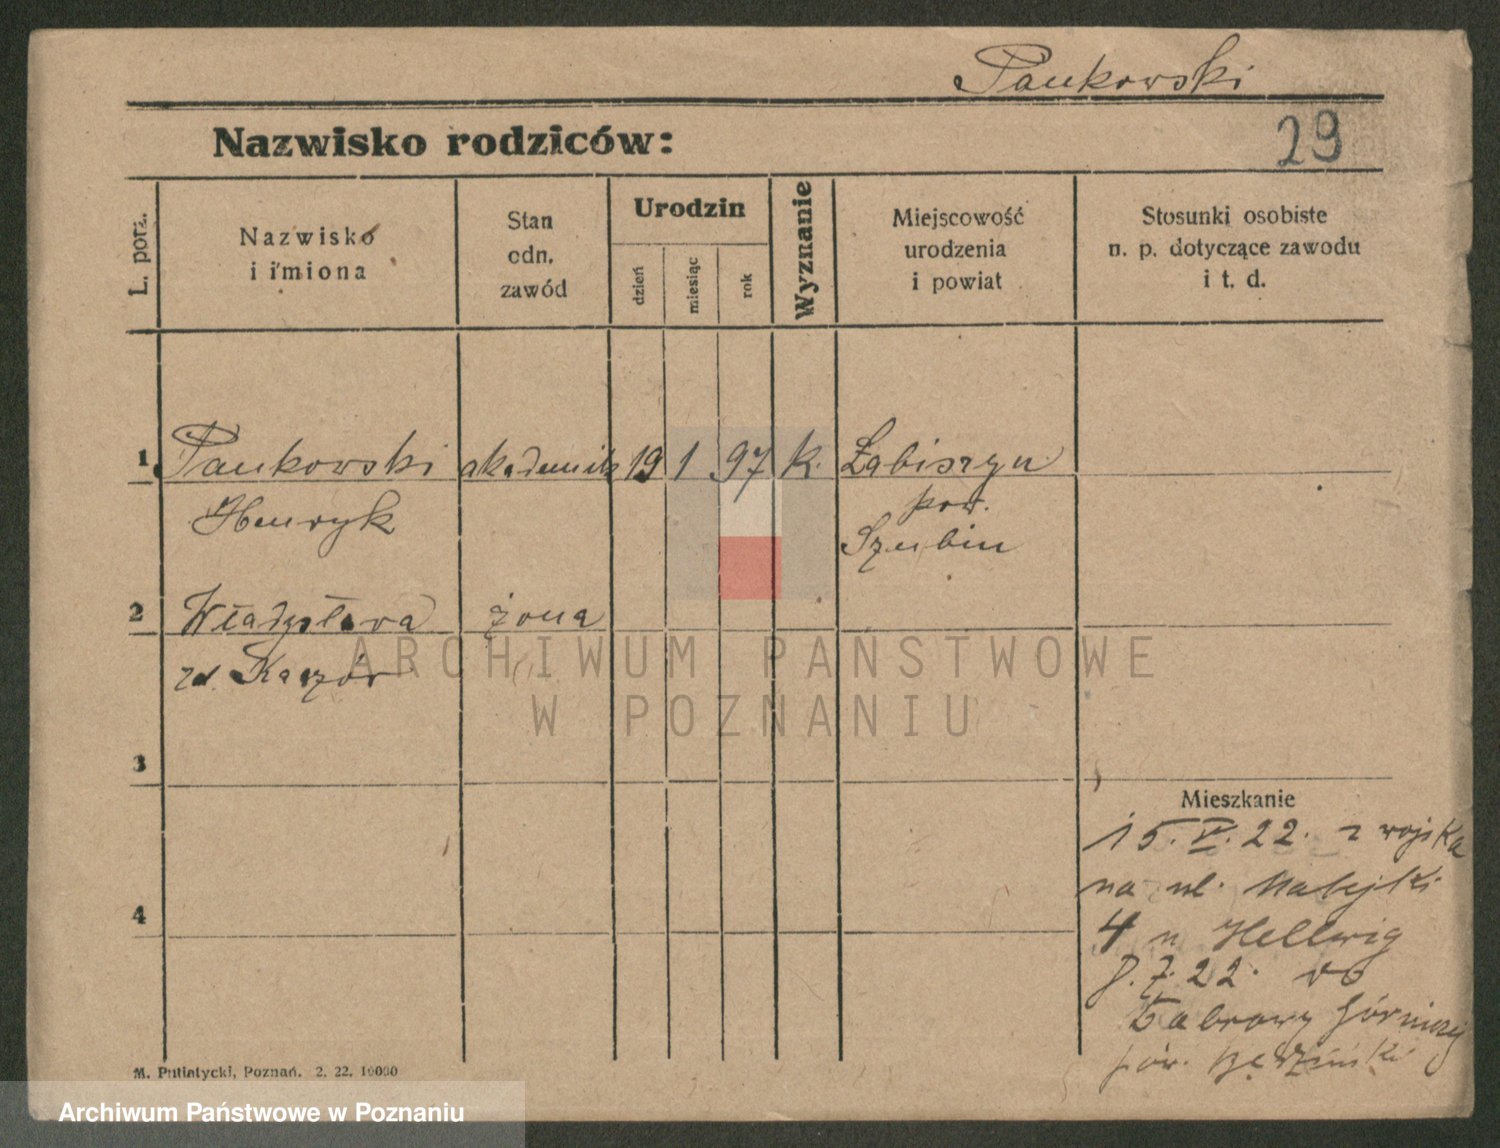 Pankowski
Nazwisko rodziców:
29
L. porz.
Nazwisko
i imiona
Stan
odn.
zawód
Urodzin
dzień
miesiąc
rok
Wyznanie
Miejscowość
urodzenia
i powiat
Stosunki osobiste
n. p. dotyczące zawodu
i t. d.
1 Pankowski akademik 19 1 97 k. Łabiszyn
Henryk pow.
Szubin
2 Władysława żona
zd. Kaczór
ARCHIWUM PAŃSTWOWE
W POZNANIU
3
Mieszkanie
15. V. 22. z wojska
na ul. Matejki
4
4 u Hellwig
8. 7. 22. do
Dabrowy Górniczej
pow. Będziński
M. Putiatycki, Poznań. 2. 22, 10000
Archiwum Państwowe w Poznaniu